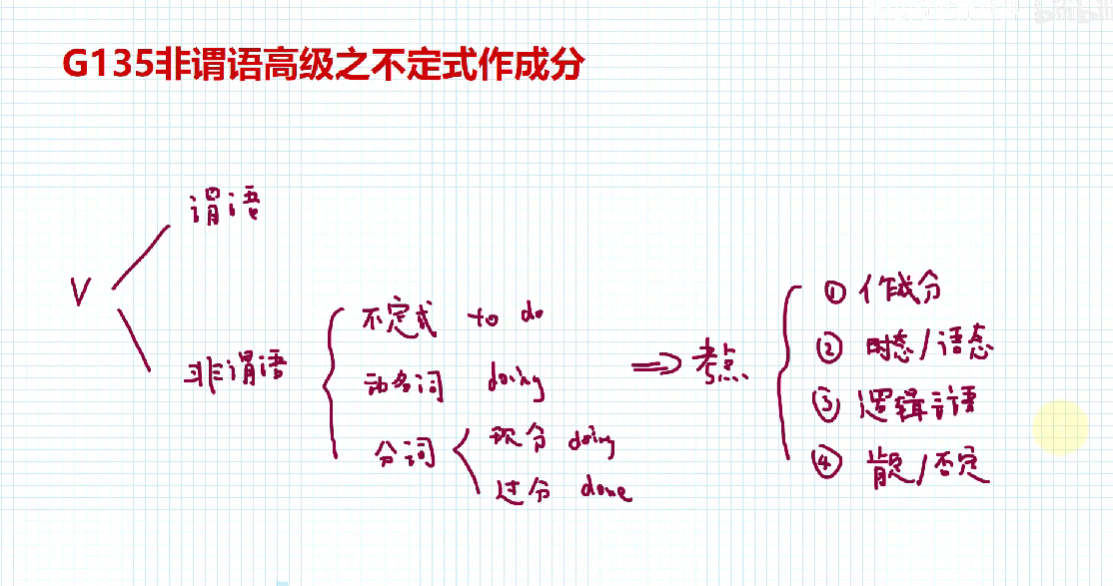 G135非谓语高级之不定式作成分
谓语
V
非谓语
不定式 to do
动名词 doing
分词
现分 doing
过分 done
⇒ 考点
① 作成分
② 时态/语态
③ 逻辑主语
④ 肯定/否定
bilibili